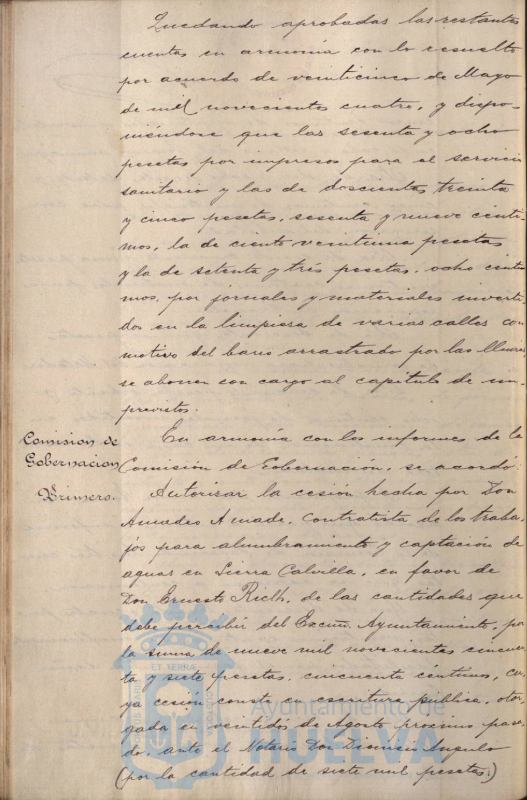 Quedando aprobadas las restantes
cuentas en armonía con lo resuelto
por acuerdo de veinticinco de Mayo
de mil novecientos cuatro, y dispo-
niéndose que las sesenta y ocho
pesetas por impresos para el servicio
sanitario y las de doscientas treinta
y cinco pesetas, sesenta y nueve centi-
mos, la de ciento veintiuna pesetas
y la de setenta y tres pesetas, ocho centi-
mos, por jornales y materiales inverti-
dos en la limpiesa de varias calles con
motivo del barro arrastrado por las lluvias
se abonen con cargo al capitulo de im-
previstos.
Comision de
Gobernacion
En armonía con los informes de la
Comisión de Gobernación, se acordó:
Primero.
Autorizar la cesión hecha por Don
Amadeo Amade, contratista de los traba-
jos para alumbramiento y captación de
aguas en Sierra Calvilla, en favor de
Don Ernesto Rieth, de las cantidades que
debe percibir del Excmo. Ayuntamiento, por
la suma de nueve mil novecientos cincuen-
ta y siete pesetas, cincuenta céntimos, cu-
ya cesión consta en escritura pública, otor-
gada en veintidos de Agosto proximo pasa-
do, ante el Notario Don Dionisio Angulo
(por la cantidad de siete mil pesetas.)
ET TERRAE
Ayuntamiento de
HUELVA